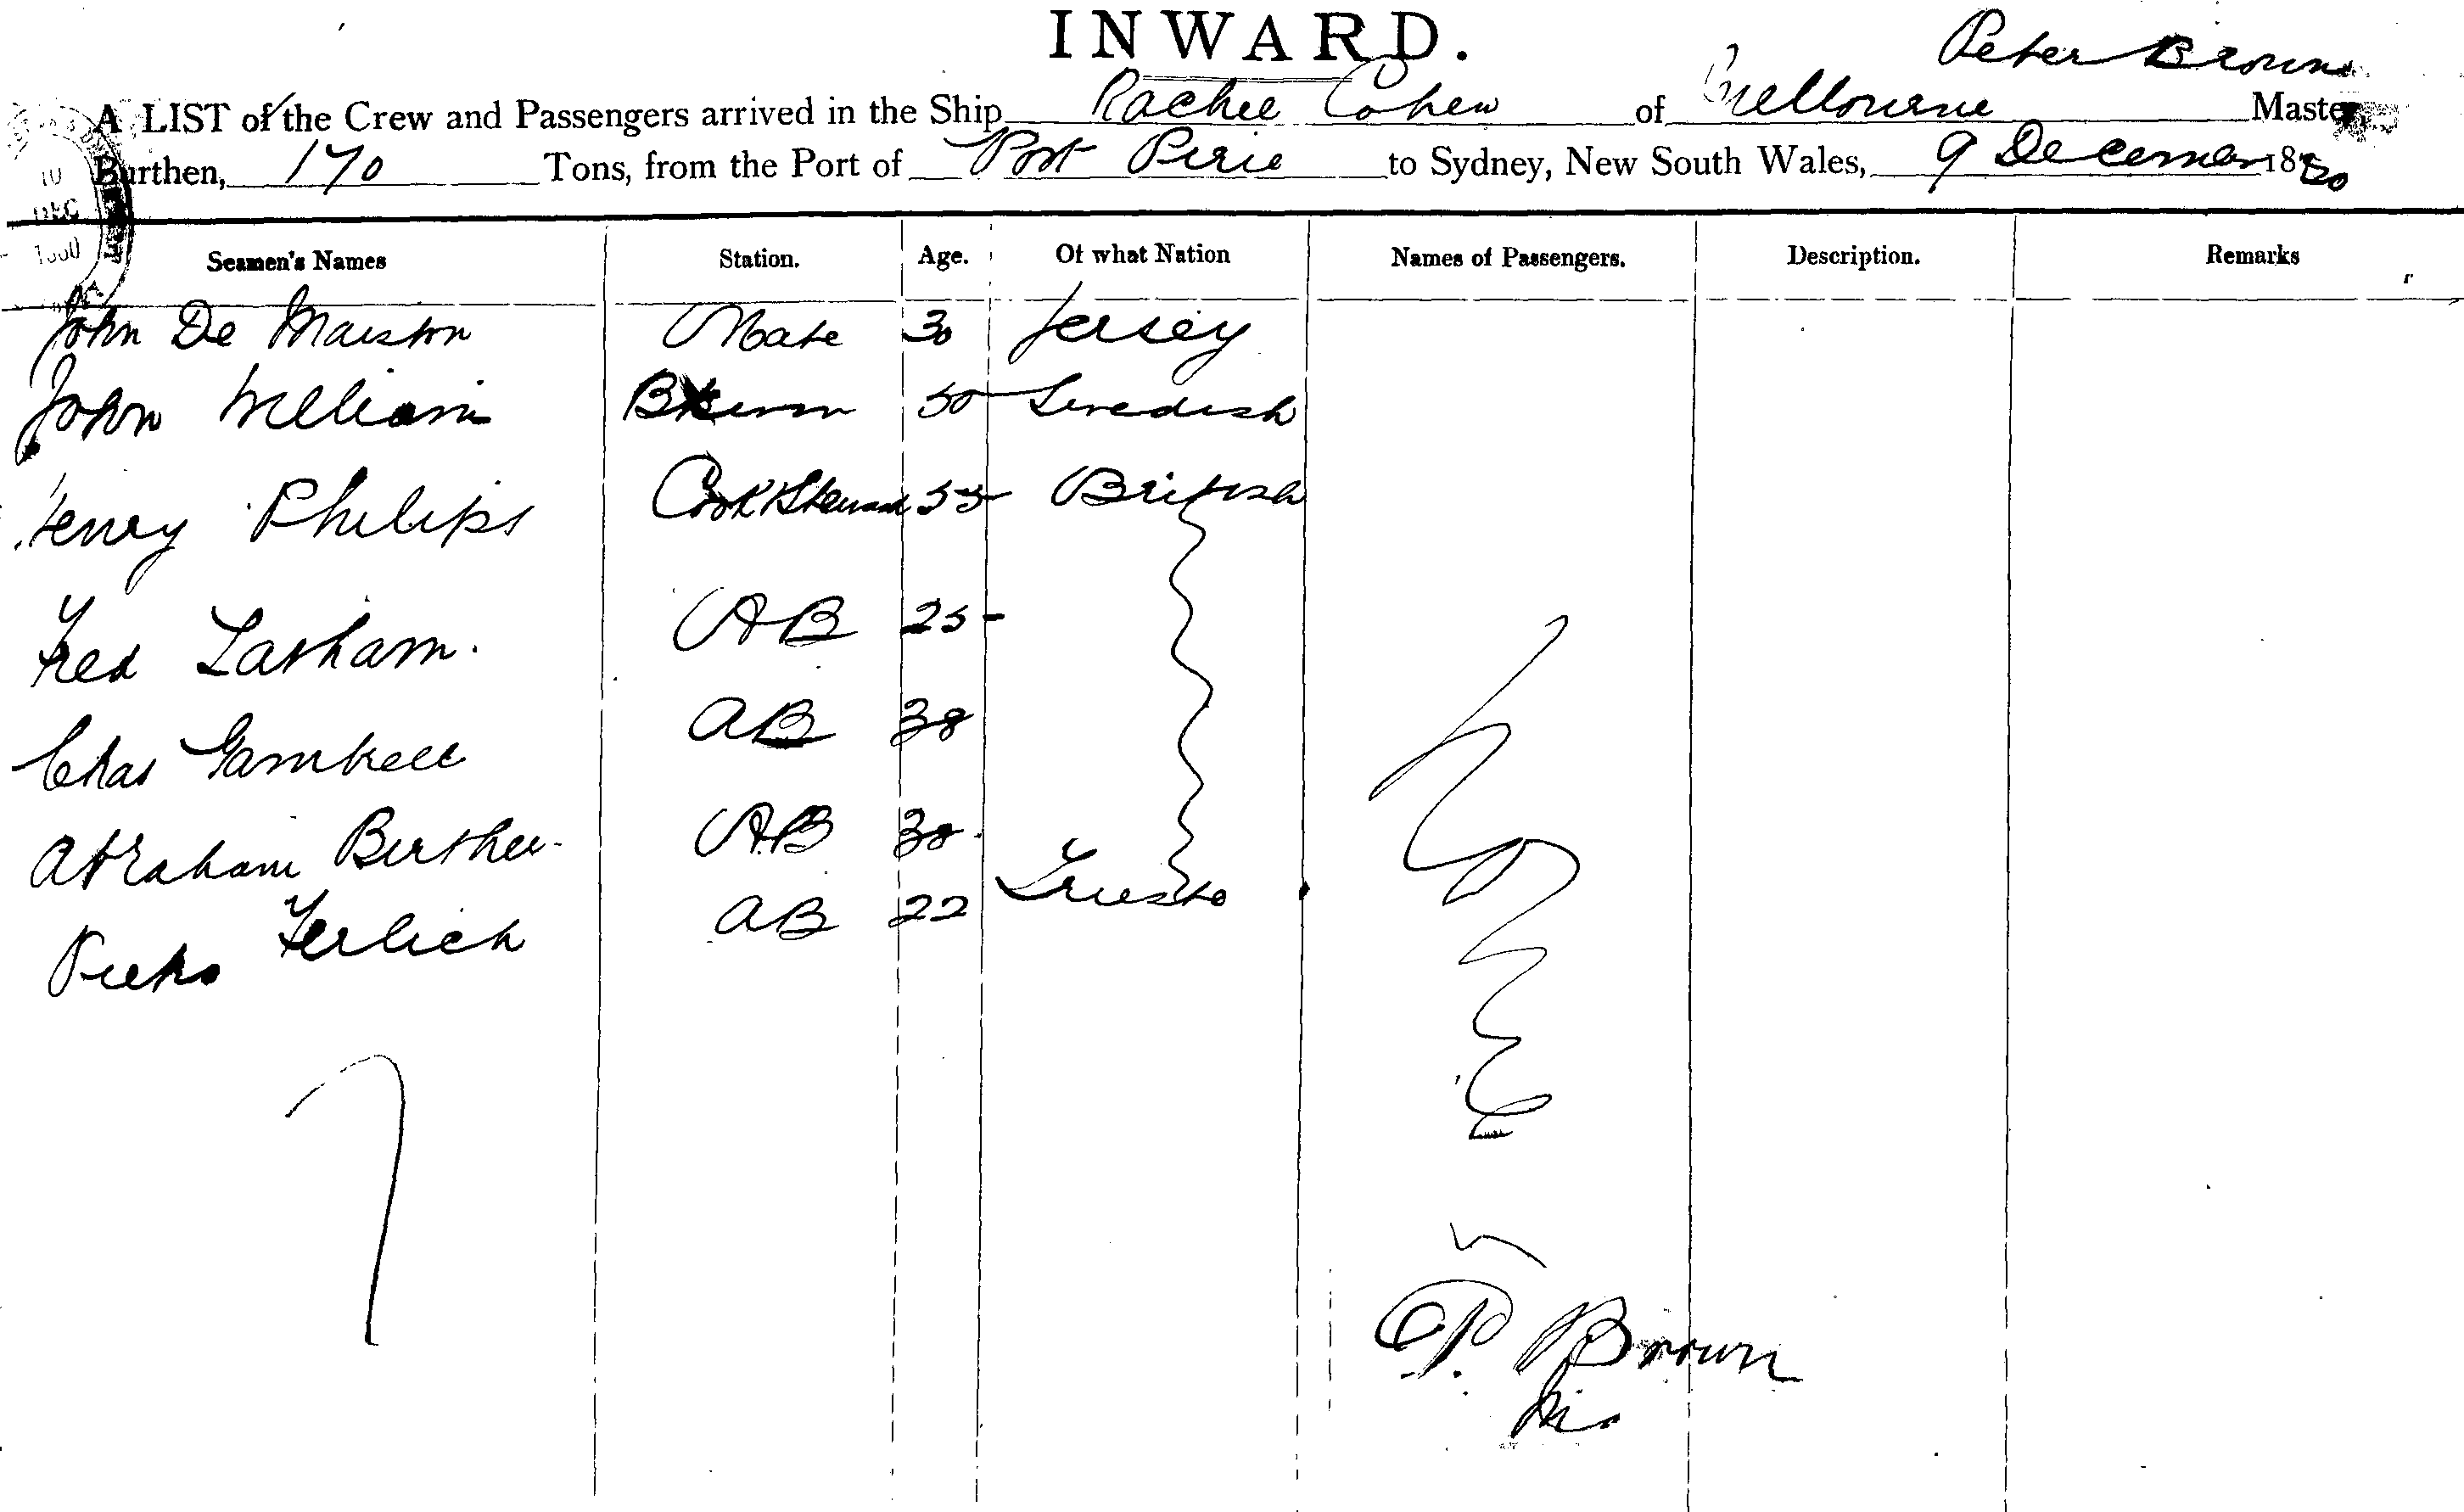 INWARD.
Peter Brown
A LIST of the Crew and Passengers arrived in the Ship Rachel Cohen of Melbourne Master,
Burthen, 170 Tons, from the Port of Port Pirie to Sydney, New South Wales, 9 December 1880
10
DEC
1880
Seamen's Names Station. Age. Of what Nation Names of Passengers. Description. Remarks
John De Mouston Mate 30 Jersey
John William 50 Swedish
Henry Philips Cook & Steward 55 British
Fred Lasham. AB 25
Chas Gambell AB 38
Abraham AB 38
Terlich AB 22 Trieste
P. Brown